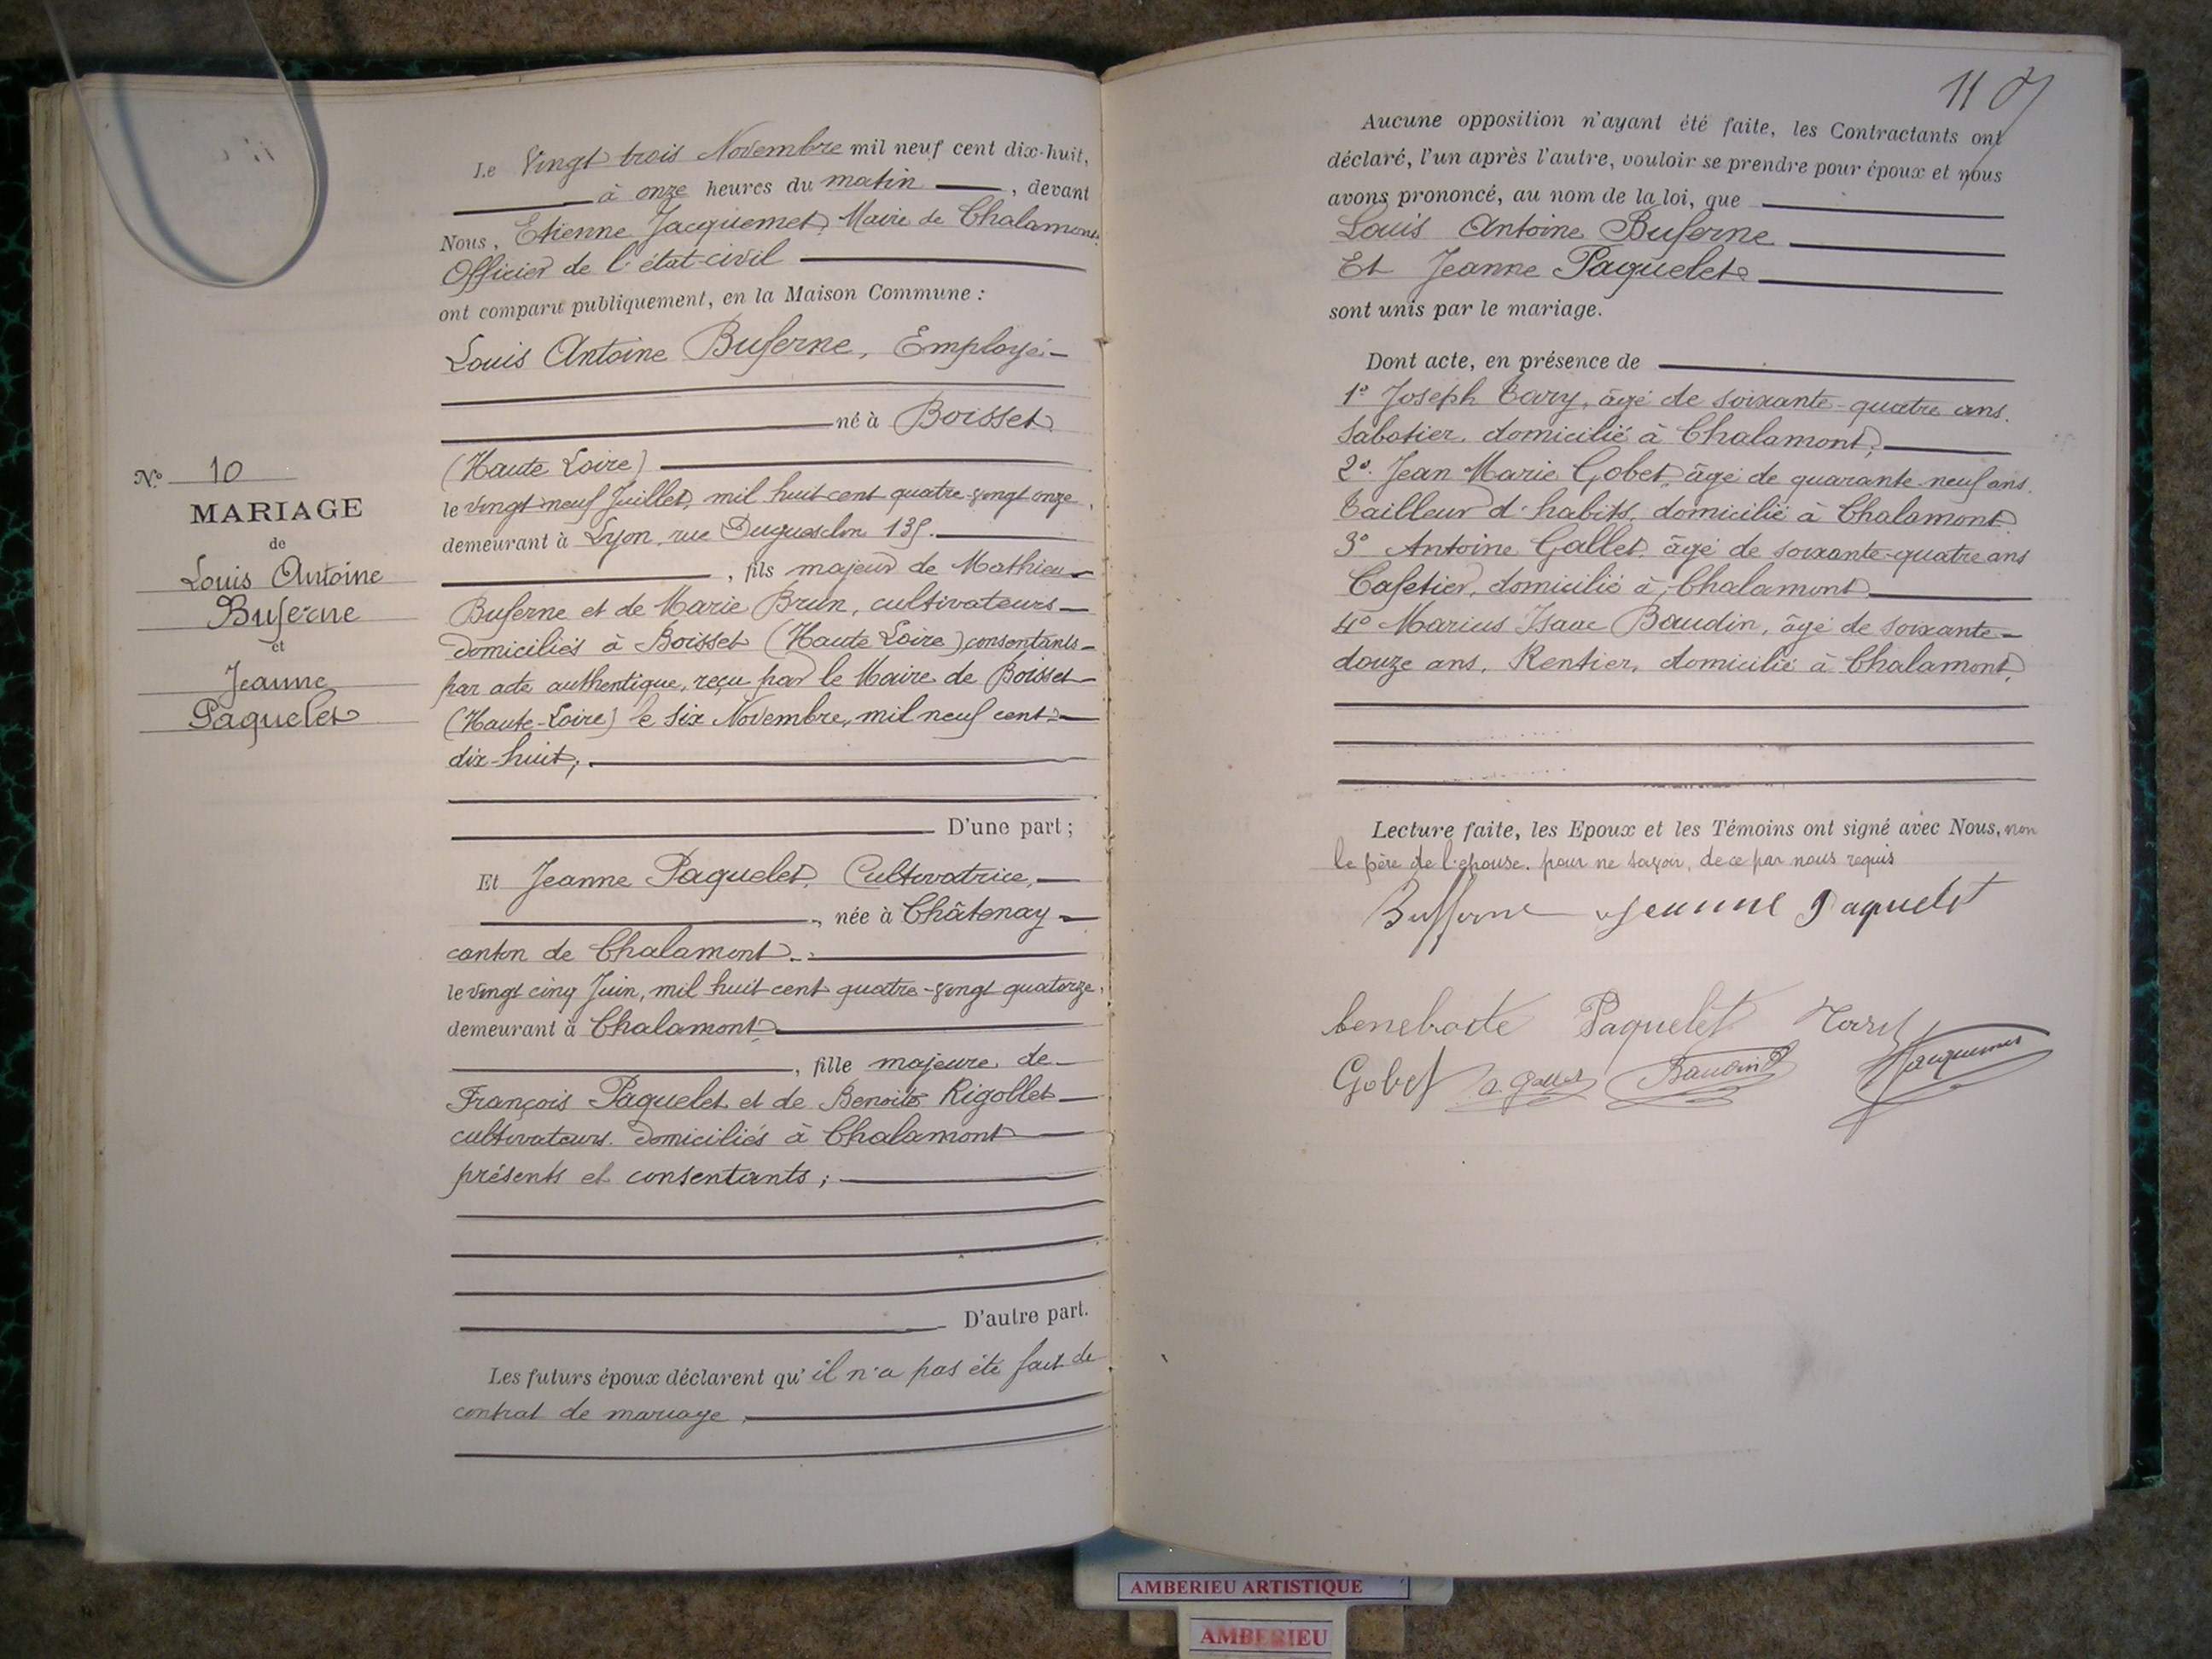 Le Vingt trois Novembre mil neuf cent dix-huit,
à onze heures du matin, devant
Nous, Etienne Jacquemet, Maire de Chalamont,
Officier de l'état-civil
ont comparu publiquement, en la Maison Commune :
Louis Antoine Buferne, Employé
né à Boisset
(Haute Loire)
le vingt-neuf Juillet, mil huit cent quatre-vingt onze,
demeurant à Lyon, rue Duguesclin
, fils majeur de Mathieu
Buferne et de Marie Brun, cultivateurs
domiciliés à Boisset (Haute Loire) consentants
par acte authentique, reçu par le Maire de Boisset
(Haute-Loire) le six Novembre, mil neuf cent
dix-huit;
D'une part ;
N° 10
MARIAGE
de
Louis Antoine
Buferne
et
Jeanne
Paquelet
Et Jeanne Paquelet, Cultivatrice,
, née à Châtenay
canton de Chalamont
le vingt cinq Juin, mil huit cent quatre-vingt quatorze,
demeurant à Chalamont
, fille majeure de
François Paquelet et de Benoite Rigollet
cultivateurs, domiciliés à Chalamont
présents et consentants;
D'autre part.
Les futurs époux déclarent qu'il n'a pas été fait de
contrat de mariage.
Aucune opposition n'ayant été faite, les Contractants ont
déclaré, l'un après l'autre, vouloir se prendre pour époux et nous
avons prononcé, au nom de la loi, que
Louis Antoine Buferne
Et Jeanne Paquelet
sont unis par le mariage.
Dont acte, en présence de
1° Joseph âgé de soixante-quatre ans,
Sabotier, domicilié à Chalamont;
2° Jean Marie Gobet, âgé de quarante-neuf ans,
Tailleur d'habits, domicilié à Chalamont
3° Antoine Gallet, âgé de soixante-quatre ans
Cafetier, domicilié à Chalamont
4° Marius Isaac Baudin, âgé de soixante-
douze ans, Rentier, domicilié à Chalamont,
Lecture faite, les Epoux et les Témoins ont signé avec Nous, non
le père de l'épouse, pour ne savoir, de ce par nous requis
Bufferne Jeanne Paquelet
Paquelet
Gobet a. Gallet Baudin Jacquemet
AMBERIEU ARTISTIQUE
AMBERIEU